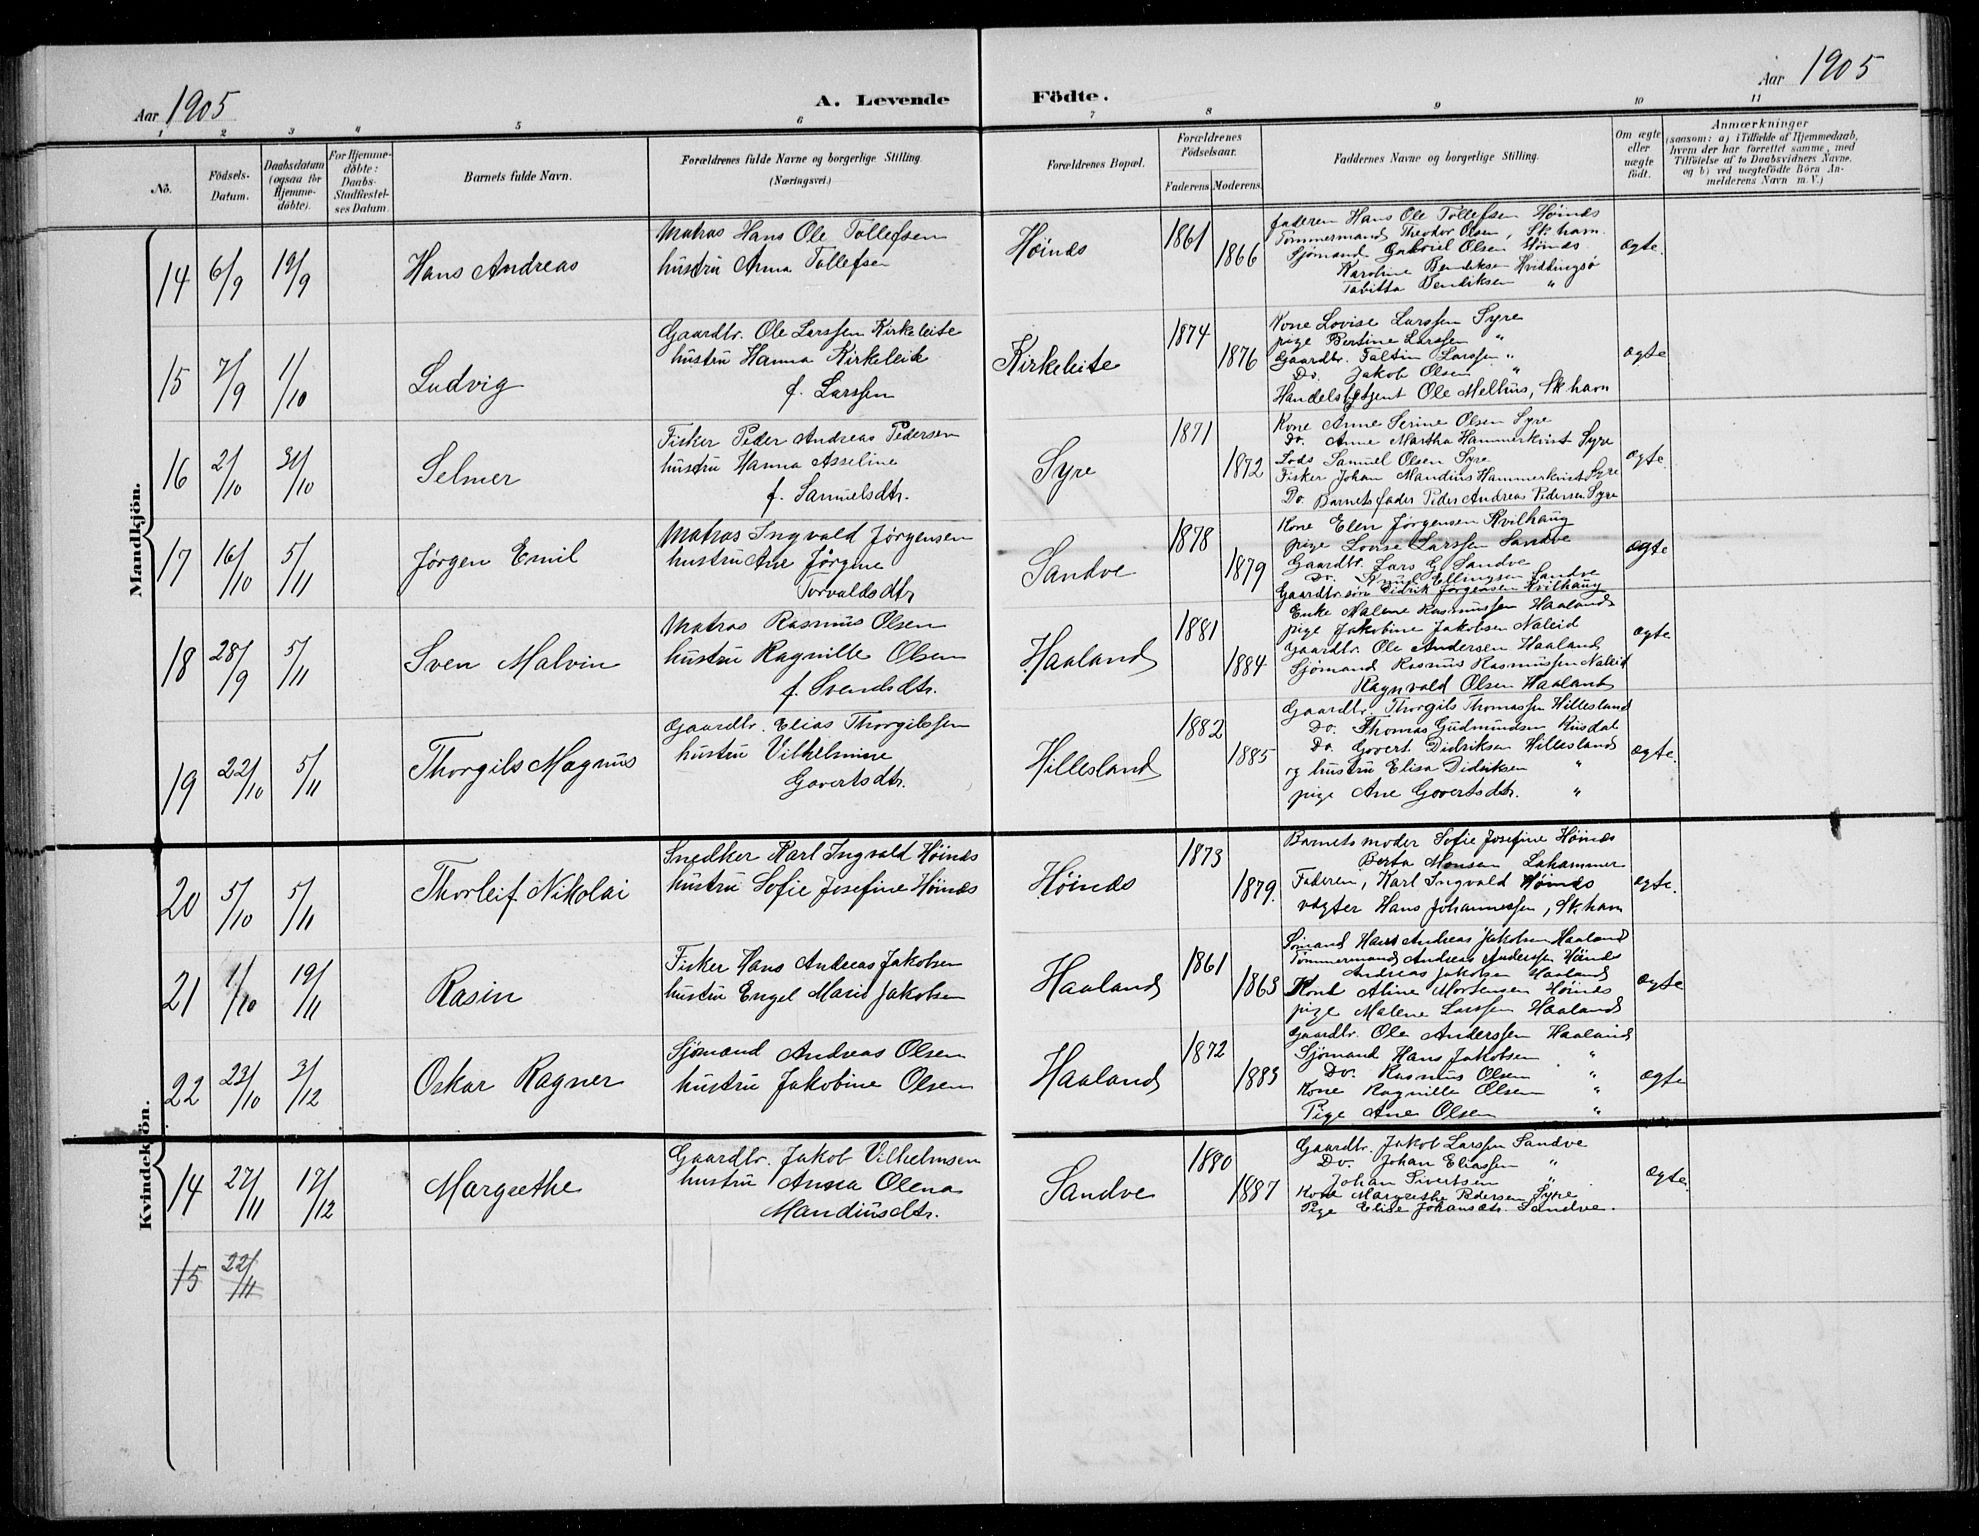 Aar 1905
A. Levende
Födte.
Aar 1905
1 2 3 4 5 6 7 8 9 10 11
No.
Födsels-Datum.
Daabsdatum (ogsaa for Hjemme-döbte).
For Hjemme-döbte: Daabs-Stadfæstel-ses Datum.
Barnets fulde Navn.
Forældrenes fulde Navne og borgerlige Stilling.
(Næringsvei.)
Forældrenes Bopæl.
Forældrenes Födselsaar.
Faderens Moderens
Faddernes Navne og borgerlige Stilling.
Om ægte eller uægte födt.
Anmærkninger
(saasom: a) i Tilfælde af Hjemmedaab, hvem der har forrettet samme, med Tilföielse af to Daabsvidners Navne. og b) ved uægtefödte Börn An-melderens Navn m. V.)
Mandkjön.
14 6/9 19/9 Hans Andreas
Matros Hans Ole Tollefsen
hustru Anna Tollefsen
Høinds 1861 1866
Faderen Hans Ole Tollefsen Høinds
Tømmermand Theodor Olsen, Sk.havn
Sjømand Gabriel Olsen Høinds
Karoline Bendiksen Hviddingsø
Tabitta Bendiksen "
ægte.
15 7/9 1/10 Ludvig
Gaardbr. Ole Larssen Kirkeleite
hustru Hanna Kirkeleite
f. Larssen
Kirkeleite 1874 1876
Kone Lovise Larssen Syre
pige Bertine Larssen "
Gaardbr. Faltin Larssen "
Do. Jakob Olsen "
Handelsagent Ole Melhus, Sk.havn
ægte
16 2/10 31/10 Selmer
Fisker Peder Andreas Pedersen
hustru Hanna Asseline
f. Samuelsdtr.
Syre 1871 1872
Kone Anne Serine Olsen Syre
Do. Anne Martha Hammerkvist Syre
Lods Samuel Olsen Syre
Fisker Johan Mandius Hammerkvist Syre
Do. Barnets fader Peder Andreas Pedersen Syre
ægte
17 16/10 5/11 Jørgen Emil
Matros Ingvald Jørgensen
hustru Ane Jørgine
Torvaldsdtr
Sandve 1878 1879
Kone Elen Jørgensen Kvilhaug
pige Lovise Larssen Sandve
Gaardbr. Lars G. Sandve
Do. Knut Ellingsen Sandve
Gaardbr.søn Didrik Jørgensen Kvilhaug
ægte
18 28/9 5/11 Sven Malvin
Matros Rasmus Olsen
hustru Ragnille Olsen
f. Svendsdtr.
Haaland 1881 1884
Enke Malene Rasmussen Haaland
pige Jakobine Jakobsen Naleid
Gaardbr. Ole Andersen Haaland
Sjømand Rasmus Rasmussen Naleid
Ragnvald Olsen Haaland
ægte
19 22/10 5/11 Thorgils Magnus
Gaardbr. Elias Thorgilssen
hustru Vilhelmine
Govertsdtr.
Hillesland 1882 1885
Gaardbr. Thorgils Thomassen Hillesland
Do. Thomas Gudmundsen Risdal
Do. Govert Didriksen Hillesland
og hustru Elisa Didriksen "
pige Ane Govertsdtr. "
ægte.
20 5/10 5/11 Thorleif Nikolai
Snedker Karl Ingvald Høinds
hustru Sofie Josefine Høinds
Høinds 1873 1879.
Barnets moder Sofie Josefine Høinds
Berta Monsen Lahammer
Faderen, Karl Ingvald Høinds
vægter Hans Johannessen, Sk.havn
ægte.
21 1/10 19/11 Rasin
Fisker Hans Andreas Jakobsen
hustru Engel Marie Jakobsen
Haaland 1861 1863
Sømand Hans Andreas Jakobsen Haaland
Tømmermand Andreas Anderssen Høinds
Andreas Jakobsen Haaland
Kone Aline Mortensen Høinds
pige Malene Larssen Haaland
ægte
22 23/10 3/12 Oskar Ragner
Sjømand Andreas Olsen
hustru Jakobine Olsen
Haaland 1872 1883
Gaardbr. Ole Anderssen Haaland
Sjømand Hans Jakobsen "
Do. Rasmus Olsen "
Kone Ragnille Olsen "
Pige Ane Olsen "
ægte
Kvindekjön.
14 27/11 17/12 Margrethe
Gaardbr. Jakob Vilhelmsen
hustru Anna Olena
Mandiusdtr.
Sandve 1880 1887
Gaardbr. Jakob Larssen Sandve
Do. Johan Eliassen "
Johan Sivertsen "
Kone Margrethe Pedersen Syre
Pige Elise Johansdtr. Sandve.
ægte.
15 22/11